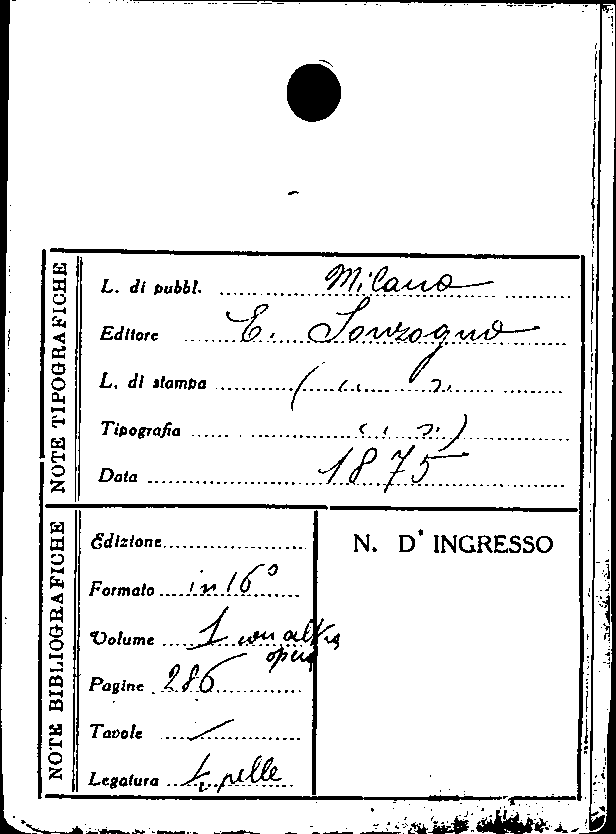 NOTE TIPOGRAFICHE
L. di pubbl. Milano
Editore E. Sonzogno
L. di stampa ( " "
Tipografia " " )
Data 1875
NOTE BIBLIOGRAFICHE
Edizione
Formato in 16°
Volume 1 con altra
opera
Pagine 286
Tavole /
Legatura pelle
N. D' INGRESSO